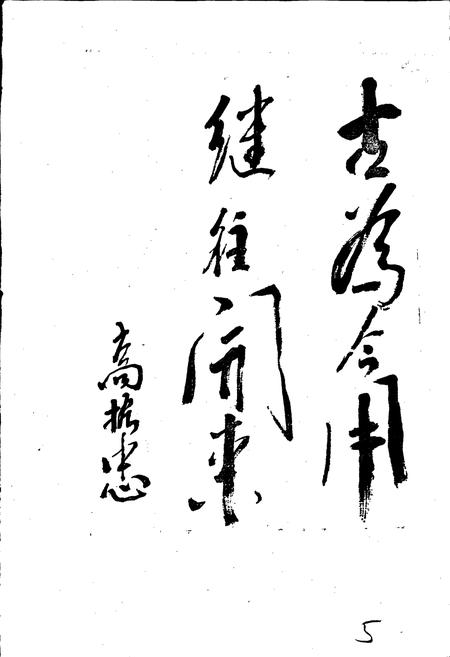 古為今用
继往開来
高振忠
5